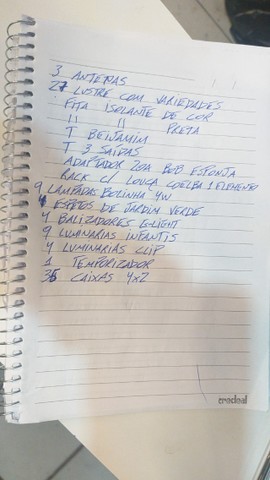 3 ANTENAS
27 LUSTRE COM VARIEDADES
FITA ISOLANTE DE COR
" " PRETA
T BEIJAMIM
T 3 SAÍDAS
ADAPTADOR 20A BOB ESPONJA
RACK C/ LOUÇA COELBA 1 ELEMENTO
9 LAMPADAS BOLINHA 4W
4 ESPETOS DE JARDIM VERDE
4 BALIZADORES G-LIGHT
9 LUMINARIAS INFANTIS
4 LUMINARIAS CLIP
1 TEMPORIZADOR
CAIXAS 4x2
credeal